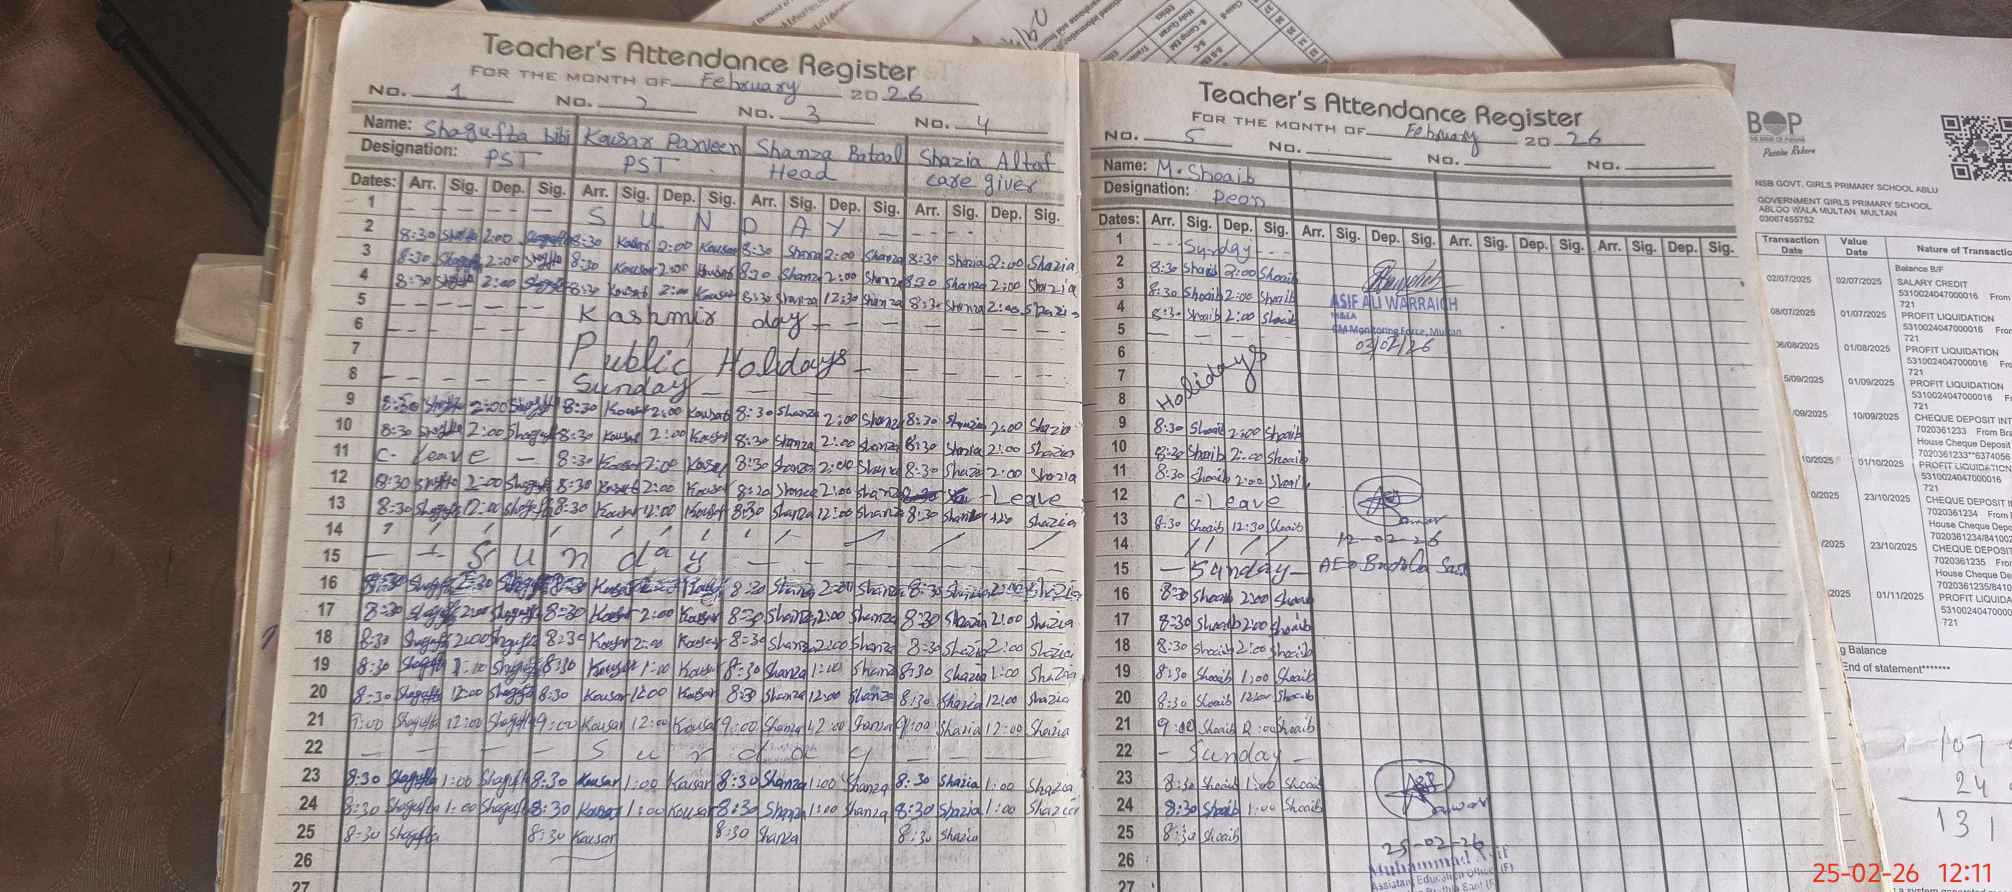 Teacher's Attendance Register
FOR THE MONTH OF February 2026
No. 1 No. 2 No. 3 No. 4
Name: Shagufta bibi Kousar Parveen Shanza Batool Shazia Altaf
Designation: PST PST Head care giver
Dates: Arr. Sig. Dep. Sig. Arr. Sig. Dep. Sig. Arr. Sig. Dep. Sig. Arr. Sig. Dep. Sig.
1 SUNDAY
2 8:30 2:00 8:30 Kousar 2:00 Kousar 8:30 Shanza 2:00 Shanza 8:30 Shazia 2:00 Shazia
3 8:30 2:00 8:30 Kousar 2:00 Kousar 8:30 Shanza 2:00 Shanza 8:30 Shanza 2:00 Shazia
4 8:30 2:00 8:30 Kousar 2:00 Kousar 8:30 Shanza 12:30 Shanza 8:30 Shanza 2:00 Shazia
5 Kashmir day
6
7 Public Holidays
8 Sunday
9 8:30 2:00 8:30 Kousar 2:00 Kousar 8:30 Shanza 2:00 Shanza 8:30 Shazia 2:00 Shazia
10 8:30 2:00 8:30 Kousar 2:00 Kousar 8:30 Shanza 2:00 Shanza 8:30 Shazia 2:00 Shazia
11 C- Leave - 8:30 Kousar 2:00 Kousar 8:30 Shanza 2:00 Shanza 8:30 Shazia 2:00 Shazia
12 8:30 2:00 8:30 Kousar 2:00 Kousar 8:30 Shanza 2:00 Shanza - Leave
13 8:30 12:00 8:30 Kousar 12:00 Kousar 8:30 Shanza 12:00 Shanza 8:30 Shazia
14
15 Sunday
16 8:30 Kousar 8:30 Shanza 2:00 Shanza 8:30 Shazia 2:00 Shazia
17 8:30 2:00 8:30 Kousar 2:00 Kousar 8:30 Shanza 2:00 Shanza 8:30 Shazia 2:00 Shazia
18 8:30 Shagufta 2:00 Shagufta 8:30 Kousar 2:00 Kousar 8:30 Shanza 2:00 Shanza 8:30 Shazia 2:00 Shazia
19 8:30 Shagufta 1:00 Shagufta 8:30 Kousar 1:00 Kousar 8:30 Shanza 1:00 Shanza 8:30 Shazia 1:00 Shazia
20 8:30 Shagufta 12:00 Shagufta 8:30 Kousar 12:00 Kousar 8:30 Shanza 12:00 Shanza 8:30 Shazia 12:00 Shazia
21 9:00 Shagufta 12:00 Shagufta 9:00 Kousar 12:00 Kousar 9:00 Shanza 12:00 Shanza 9:00 Shazia 12:00 Shazia
22 Sunday
23 8:30 Shagufta 1:00 Shagufta 8:30 Kousar 1:00 Kousar 8:30 Shanza 1:00 Shanza 8:30 Shazia 1:00 Shazia
24 8:30 Shagufta 1:00 Shagufta 8:30 Kousar 1:00 Kousar 8:30 Shanza 1:00 Shanza 8:30 Shazia 1:00 Shazia
25 8:30 Shagufta 8:30 Kousar 8:30 Shanza 8:30 Shazia
26
27
Teacher's Attendance Register
FOR THE MONTH OF February 2026
No. 5 No. No. No.
Name: M. Shoaib
Designation: Peon
Dates: Arr. Sig. Dep. Sig. Arr. Sig. Dep. Sig. Arr. Sig. Dep. Sig. Arr. Sig. Dep. Sig.
1 Sunday
2 8:30 Shoaib 2:00 Shoaib
3 8:30 Shoaib 2:00 Shoaib
4 8:30 Shoaib 2:00 Shoaib
ASIF ALI WARRAICH
CM Monitoring Force, Multan
03/02/26
5
6
7 Holidays
8
9 8:30 Shoaib 2:00 Shoaib
10 8:30 Shoaib 2:00 Shoaib
11 8:30 Shoaib 2:00 Shoaib
12 C-Leave
13 8:30 Shoaib 12:30 Shoaib
12-02-26
14
15 - Sunday - AEO
16 8:30 Shoaib 2:00 Shoaib
17 8:30 Shoaib 2:00 Shoaib
18 8:30 Shoaib 2:00 Shoaib
19 8:30 Shoaib 1:00 Shoaib
20 8:30 Shoaib 12:00 Shoaib
21 9:00 Shoaib Shoaib
22 - Sunday -
23 8:30 Shoaib 1:00 Shoaib
24 8:30 Shoaib 1:00 Shoaib
25 8:30 Shoaib
25-02-26
26
Muhammad Asif
Assistant Education Officer (F)
27
BOP
THE BANK OF PUNJAB
Passion Reborn
NSB GOVT. GIRLS PRIMARY SCHOOL ABLU
GOVERNMENT GIRLS PRIMARY SCHOOL
ABLOO WALA MULTAN MULTAN
03067455752
Transaction Date Value Date Nature of Transactio
Balance B/F
02/07/2025 02/07/2025 SALARY CREDIT
5310024047000016 From
721
08/07/2025 01/07/2025 PROFIT LIQUIDATION
5310024047000016 From
721
01/08/2025 PROFIT LIQUIDATION
5310024047000016
721
01/09/2025 PROFIT LIQUIDATION
5310024047000016
721
10/09/2025 CHEQUE DEPOSIT INT
7020361233 From Bra
House Cheque Deposit
01/10/2025 PROFIT LIQUIDATION
5310024047000016
721
23/10/2025 CHEQUE DEPOSIT
7020361234 From
House Cheque Depo
23/10/2025 CHEQUE DEPOSIT
7020361235 From
House Cheque De
01/11/2025 PROFIT LIQUIDA
721
g Balance
End of statement*******
107
24
131
25-02-26 12:11